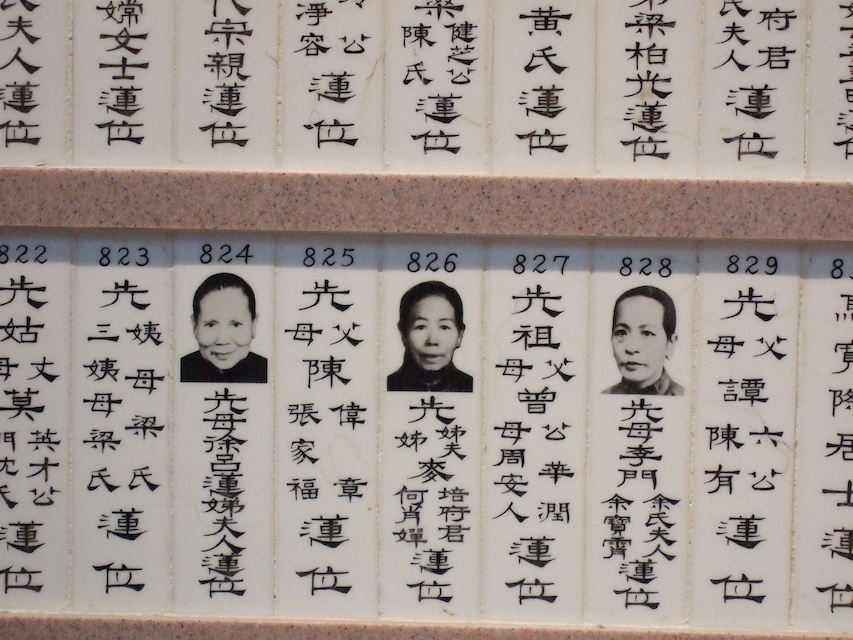 夫人蓮位
嫦女士蓮位
宗親蓮位
公
淨容
蓮位
梁
健芝公
陳氏
蓮位
黃氏蓮位
梁柏光蓮位
府君
夫人
蓮位
822
先姑
丈
母
莫
英才公
門沈氏
蓮位
823
先
姨母梁氏
三姨母梁氏
蓮位
824
先母徐呂蓮娣夫人蓮位
825
先
父
母
陳
偉章
張家福
蓮位
826
先
姊夫
姊
麥
培府君
何肖嬋
蓮位
827
先祖
父
母
曾
公華潤
母周安人
蓮位
828
先母李門
余氏夫人
余寶霄
蓮位
829
先
父
母
譚
六公
陳有
蓮位
馬寶
居士蓮位